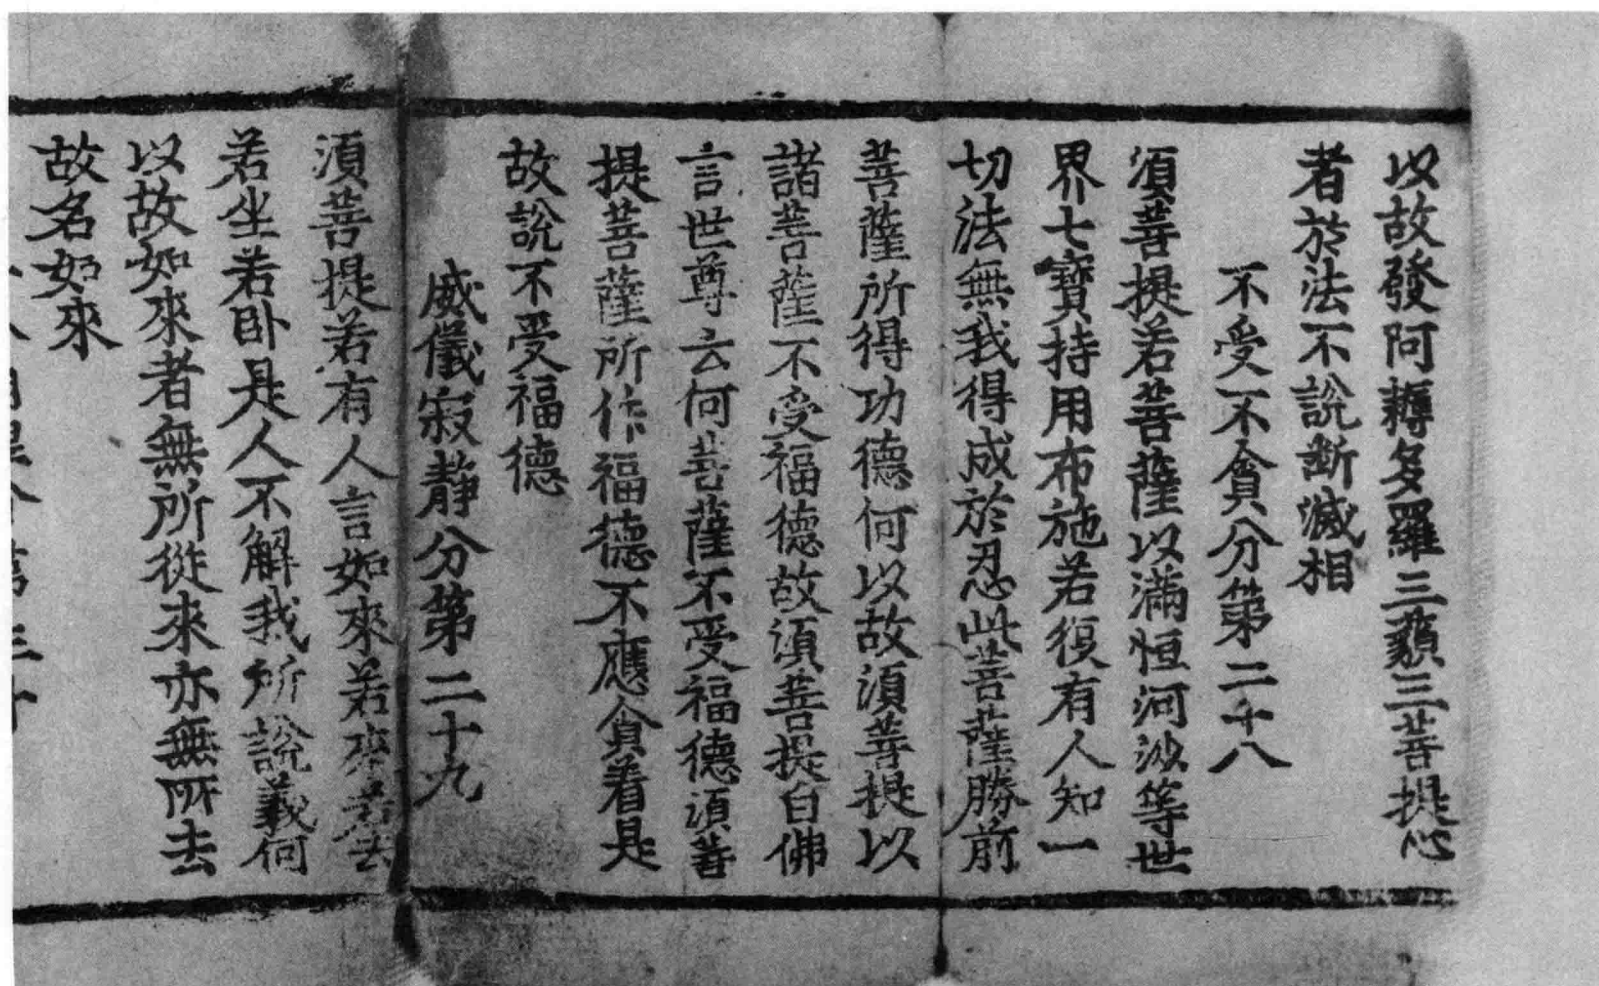 以故發阿耨多羅三藐三菩提心
者於法不說斷滅相
不受不貪分第二十八
須菩提若菩薩以滿恒河沙等世
界七寶持用布施若復有人知一
切法無我得成於忍此菩薩勝前
菩薩所得功德何以故須菩提以
諸菩薩不受福德故須菩提白佛
言世尊云何菩薩不受福德須菩
提菩薩所作福德不應貪着是
故說不受福德
威儀寂靜分第二十九
須菩提若有人言如來若來若去
若坐若卧是人不解我所說義何
以故如來者無所從來亦無所去
故名如來